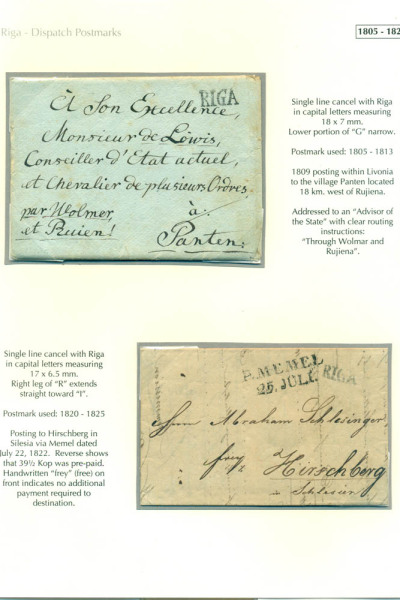 Riga - Dispatch Postmarks
1805 - 182
RIGA
À Son Excellence,
Monsieur de Löwis,
Conseiller d'Etat actuel,
et Chevalier de plusieurs Ordres
par Wolmer,
et Ruien!
à
Panten:
Single line cancel with Riga
in capital letters measuring
18 x 7 mm.
Lower portion of "G" narrow.
Postmark used: 1805 - 1813
1809 posting within Livonia
to the village Panten located
18 km. west of Rujiena.
Addressed to an "Advisor of
the State" with clear routing
instructions:
"Through Wolmar and
Rujiena".
Single line cancel with Riga
in capital letters measuring
17 x 6.5 mm.
Right leg of "R" extends
straight toward "I".
Postmark used: 1820 - 1825
Posting to Hirschberg in
Silesia via Memel dated
July 22, 1822. Reverse shows
that 39½ Kop was pre-paid.
Handwritten "frey" (free) on
front indicates no additional
payment required to
destination.
P. MEMEL
25. JULI.
RIGA
Herrn Abraham Schlesinger
frey
Hirschberg
in Schlesien